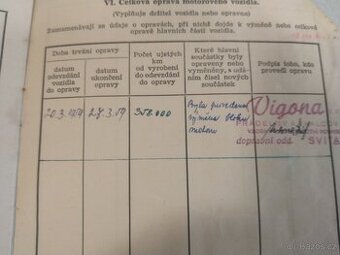 VI. Celková oprava motorového vozidla.
(Vyplňuje držitel vozidla nebo opravna)
Zaznamenávají se údaje o opravách, při nichž dojde k výměně nebo celkové
opravě hlavních částí vozidla.
Doba trvání opravy
datum
odevzdání
vozidla
do opravy
datum
ukončení
opravy
Počet ujetých
km od vyrobení
do odevzdání
do opravy
Které hlavní
součástky byly
opraveny nebo
vyměněny, s udá-
ním čísel nových
součástek
Podpis toho, kdo
provedl opravu
20.3.1959
27.3.59
350.000
Byla provedena
výměna bloku
motoru
Vigona
dopravní odd.
SVITA